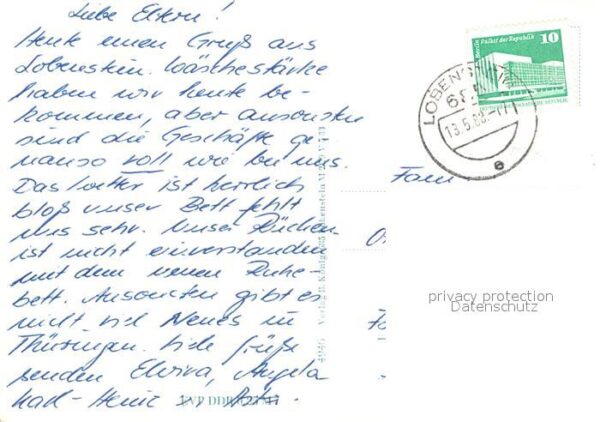 Liebe Eltern!
Heute einen Gruß aus
Lobenstein. Wäschestärke
haben wir heute be-
kommen, aber ansonsten
sind die Geschäfte ge
nauso voll wie bei uns.
Das Wetter ist herrlich
bloß unser Bett fehlt
uns sehr. Unser Rücken
ist nicht einverstanden
mit dem neuen Ruhe
bett. Ansonsten gibt es
nicht viel Neues in
Thüringen. Viele Grüße
senden Elvira, Angela
Karl-Heinz
EVP DDR
Verlag
10
Palast der Republik
LOBENSTEIN
13.5.
Fam
privacy protection
Datenschutz